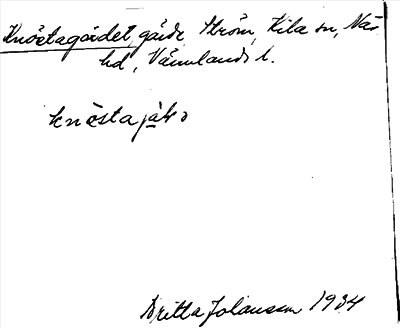 Knöstagärdet, gärde Ström, Kila sn, Näs
hd, Värmlands l.
knöstajä
Britta Johansson 1934